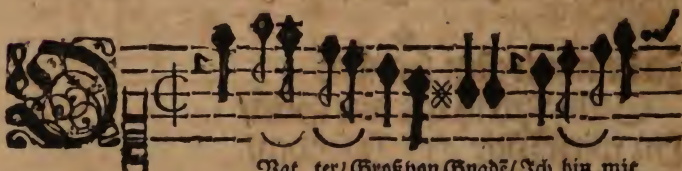 O Vat ter/ Groß von Gnadē/ Ich bin mit